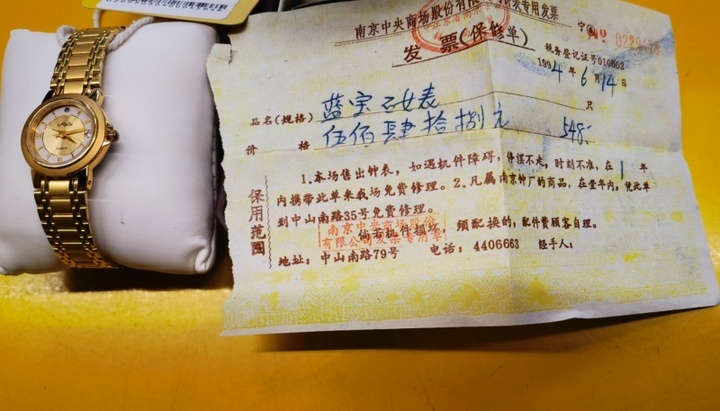 南京中央商场股份有限 表专用发票
发 票(保修单)
税务登记证号010002
1994年6月14日
品名(规格) 蓝宝石女表 只
价 格 伍佰肆拾捌元 548.-
保用范围
1.本场售出钟表,如遇机件障碍,件误不走,时刻不准,在1年
内携带此单来我场免费修理。2.凡属南京钟厂的商品,在壹年内,凭此单
到中山南路35号免费修理。
南京中央商场股份
有限公司发票专用章
倘若机件损坏,须配换的,配件费顾客自理。
地址:中山南路79号 电话:4406663 经手人: